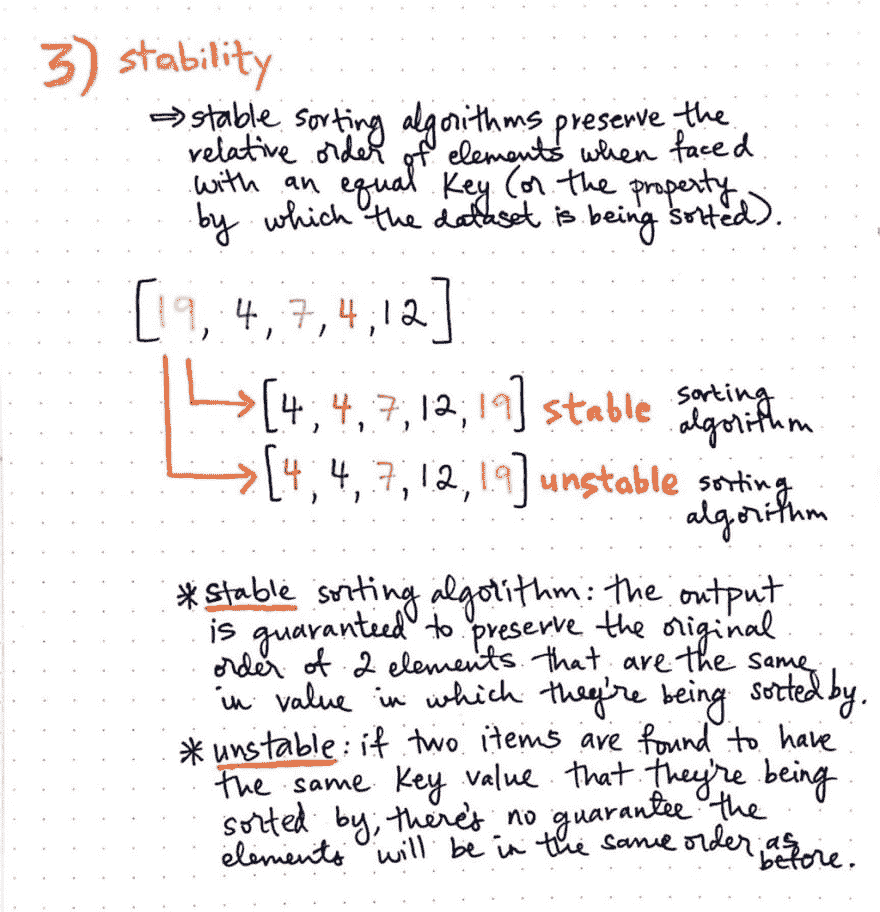 3) stability
⇒ stable sorting algorithms preserve the
relative order of elements when faced
with an equal key (or the property
by which the dataset is being sorted).
[19, 4, 7, 4, 12]
[4, 4, 7, 12, 19] stable sorting
algorithm
[4, 4, 7, 12, 19] unstable sorting
algorithm
* stable sorting algorithm: the output
is guaranteed to preserve the original
order of 2 elements that are the same
in value in which they're being sorted by.
* unstable: if two items are found to have
the same key value that they're being
sorted by, there's no guarantee the
elements will be in the same order as
before.